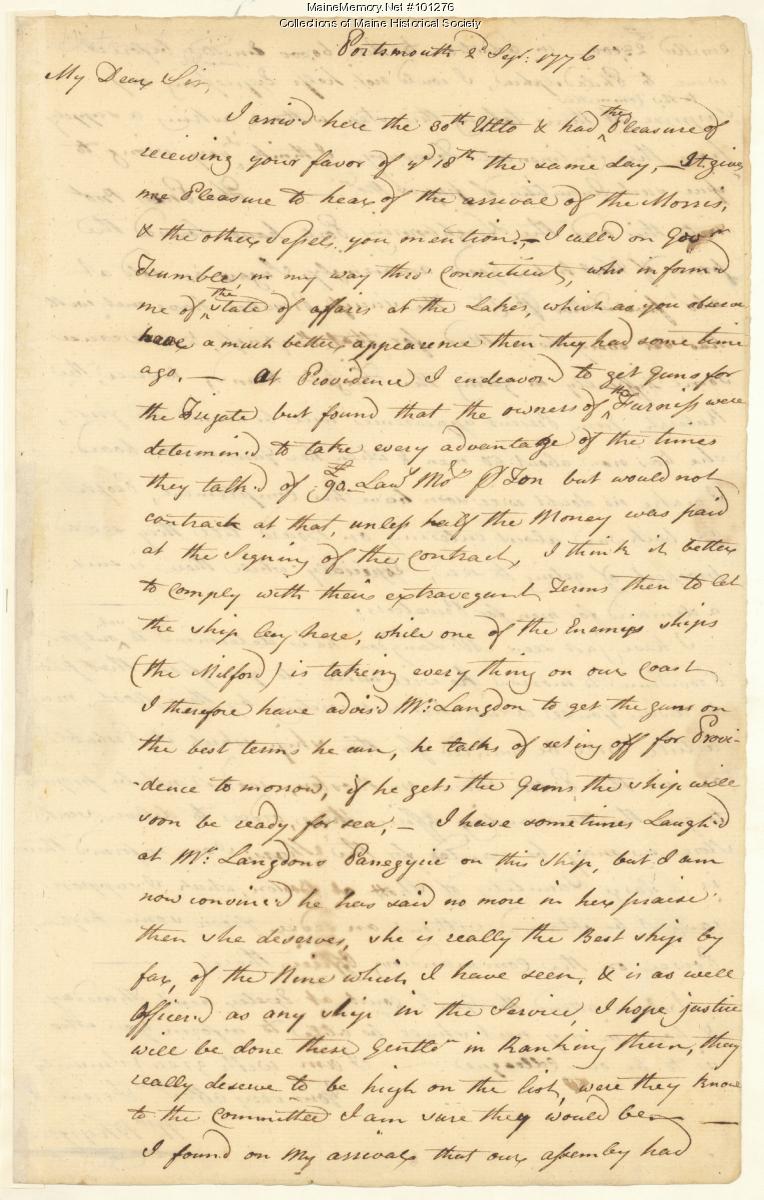 MaineMemory.Net #101276
Collections of Maine Historical Society
Portsmouth 2d Sept. 1776
My Dear Sir,
I arriv'd here the 30th Ulto & had the Pleasure of
receiving your favor of ye 18th the same day, — It gives
me Pleasure to hear of the arrival of the Morris,
& the other Vessel you mention, — I call'd on Govr
Trumble, in my way thro' Connecticut, who inform'd
me of the state of affairs at the Lakes, which as you observe
have a much better appearence then they had some time
ago. — At Providence I endeavor'd to get Guns for
the Frigate but found that the owners of the Furniss were
determin'd to take every advantage of the times
they talk'd of £90 Lawl Mo'y ⅌ Ton but would not
contract at that, unless half the Money was paid
at the Signing of the Contract, I think it better
to comply with their extravegant Terms then to let
the ship lay here, while one of the Enemies ships
(the Milford) is taking every thing on our Coast
I therefore have advis'd Mr. Langdon to get the guns on
the best terms he can, he talks of seting off for Provi-
-dence tomorrow, if he gets the Guns the ship will
soon be ready for sea, — I have sometimes Laugh'd
at Mr. Langdons Panegyric on this ship, but I am
now convinc'd he has said no more in her praise
then she deserves, she is really the Best ship by
far, of the Nine which I have seen, & is as well
officer'd as any ship in the Service, I hope justice
will be done these Gentln in Ranking them, they
really deserve to be high on the list, were they know
to the Committee I am sure they would be — 
I found on my arrival that our assembly had